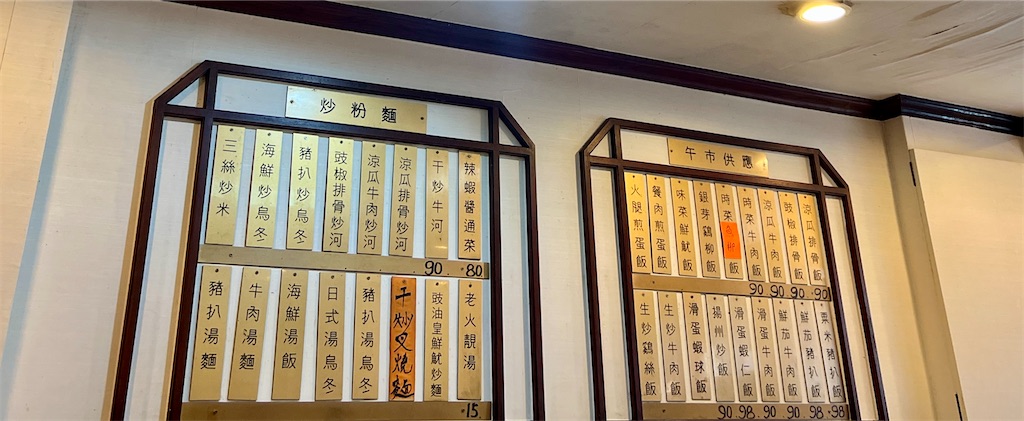 炒粉麵
三絲炒米
海鮮炒烏冬
豬扒炒烏冬
豉椒排骨炒河
涼瓜牛肉炒河
涼瓜排骨炒河
干炒牛河
辣蝦醬通菜
90
80
豬扒湯麵
牛肉湯麵
海鮮湯飯
日式湯烏冬
豬扒湯烏冬
干炒叉燒麵
豉油皇鮮魷炒麵
老火靚湯
15
午市供應
火腿煎蛋飯
餐肉煎蛋飯
味菜鮮魷飯
銀芽鷄柳飯
時菜飯
時菜牛肉飯
涼瓜牛肉飯
豉椒排骨飯
涼瓜排骨飯
90 90 90 90
生炒鷄絲飯
生炒牛肉飯
滑蛋蝦球飯
揚州炒飯
滑蛋蝦仁飯
滑蛋牛肉飯
鮮茄牛肉飯
鮮茄豬扒飯
粟米豬扒飯
90 98 90 90 98 98